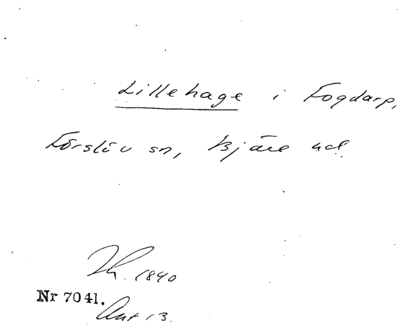 Lillehage i Fogdarp,
Förslöv sn, Bjäre hd.
Th. 1840
Nr 7041.
Aut 13.